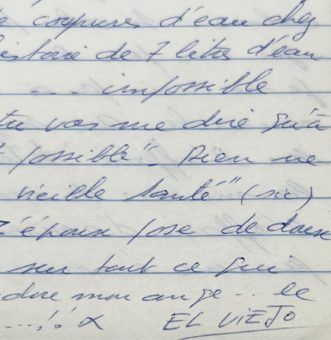 coupures d'eau chez
de 7 litres d'eau
... impossible
tu vas me dire qu'à
possible". Rien ne
vieille santé" (sic)
pose de douse
sur tout ce qui
mon ange .. le
...!. X EL VIEJO